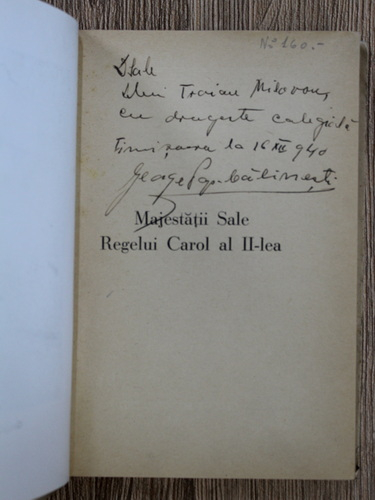 No 160.-
D-sale
D-lui Traian Milovan,
cu dragoste colegială
Timișoara la 16 XII 940
George
Majestății Sale
Regelui Carol al II-lea